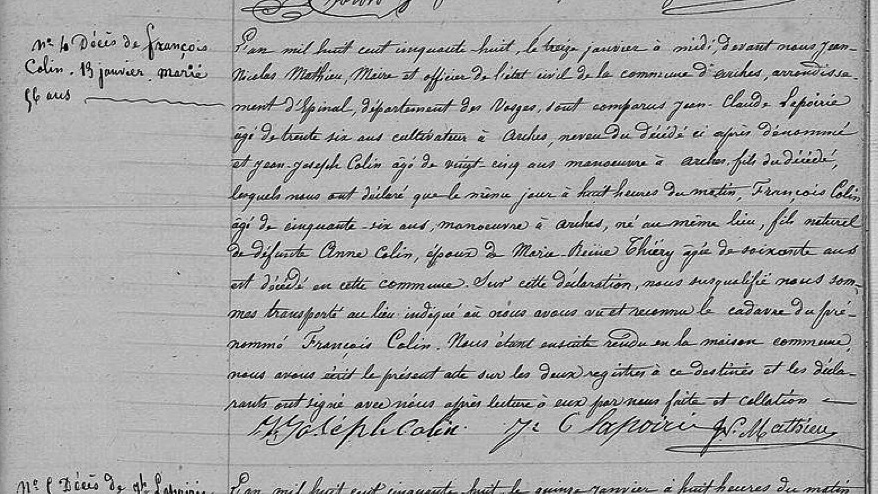 Nº 4 Décès de François
Colin. 13 janvier. marié
56 ans
L'an mil huit cent cinquante huit, le treize janvier à midi, devant nous Jean-
Nicolas Mathieu, Maire et officier de l'état civil de la commune d'Arches, arrondisse-
ment d'Epinal, département des Vosges, sont comparus Jean-Claude Lapoirie
âgé de trente six ans cultivateur à Arches, neveu du décédé ci après dénommé
et Jean-Joseph Colin âgé de vingt-cinq ans manoeuvre à Arches, fils du décédé,
lesquels nous ont déclaré que le même jour à huit heures du matin, François Colin
âgé de cinquante-six ans, manoeuvre à Arches, né au même lieu, fils naturel
de défunte Anne Colin, époux de Marie-Reine Thiéry âgée de soixante ans
est décédé en cette commune. Sur cette déclaration, nous susqualifié nous som-
mes transporté au lieu indiqué où nous avons vu et reconnu le cadavre du pré-
nommé François Colin. Nous étant ensuite rendu en la maison commune,
nous avons écrit le présent acte sur les deux registres à ce destinés et les décla-
rants ont signé avec nous après lecture à eux par nous faite et collation
J. Joseph Colin. Jn C Lapoirie JN. Mathieu
Décès de
L'an mil huit cent cinquante huit, le quinze janvier à huit heures du matin